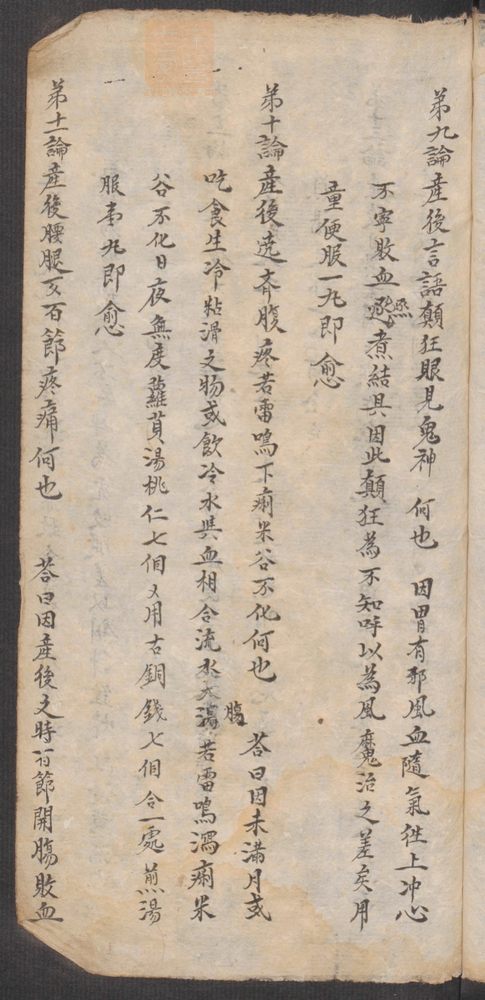 第九論産後言語顛狂眼見鬼神 何也 因胃有邪風血隨氣徃上冲心
不寧敗血蒸煮結具因此顛狂為不知呼以為風魔治之差矣用
童便服一丸即愈
第十論産後遶夲腹疼若雷鳴下痢米谷不化何也 荅曰因未滿月或
吃食生冷粘滑之物或飲冷水與血相合流水大腸若雷鳴瀉痢米
谷不化日夜無度蘿蔔湯桃仁七個又用古銅錢七個合一處煎湯
服壹丸即愈
第十一論産後腰腿又百節疼痛何也 荅曰因産後之時百節開腸敗血